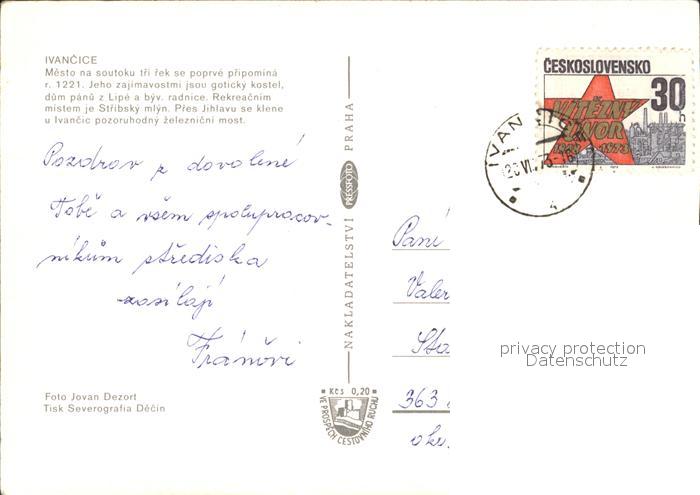 IVANČICE
Město na soutoku tří řek se poprvé připomíná
r. 1221. Jeho zajímavostmi jsou gotický kostel,
dům pánů z Lipé a býv. radnice. Rekreačním
místem je Stříbský mlýn. Přes Jihlavu se klene
u Ivančic pozoruhodný železniční most.
Pozdrav z dovolené
Tobě a všem spolupracov-
níkům střediska
zasílají
Foto Jovan Dezort
Tisk Severografia Děčín
NAKLADATELSTVÍ PRESSFOTO PRAHA
Kčs 0,20
VE PROSPĚCH CESTOVNÍHO RUCHU
ČESKOSLOVENSKO
30 h
VÍTĚZNÝ
ÚNOR
1973
IVANČICE
Paní
Valer
Sta
363
okr.
privacy protection
Datenschutz